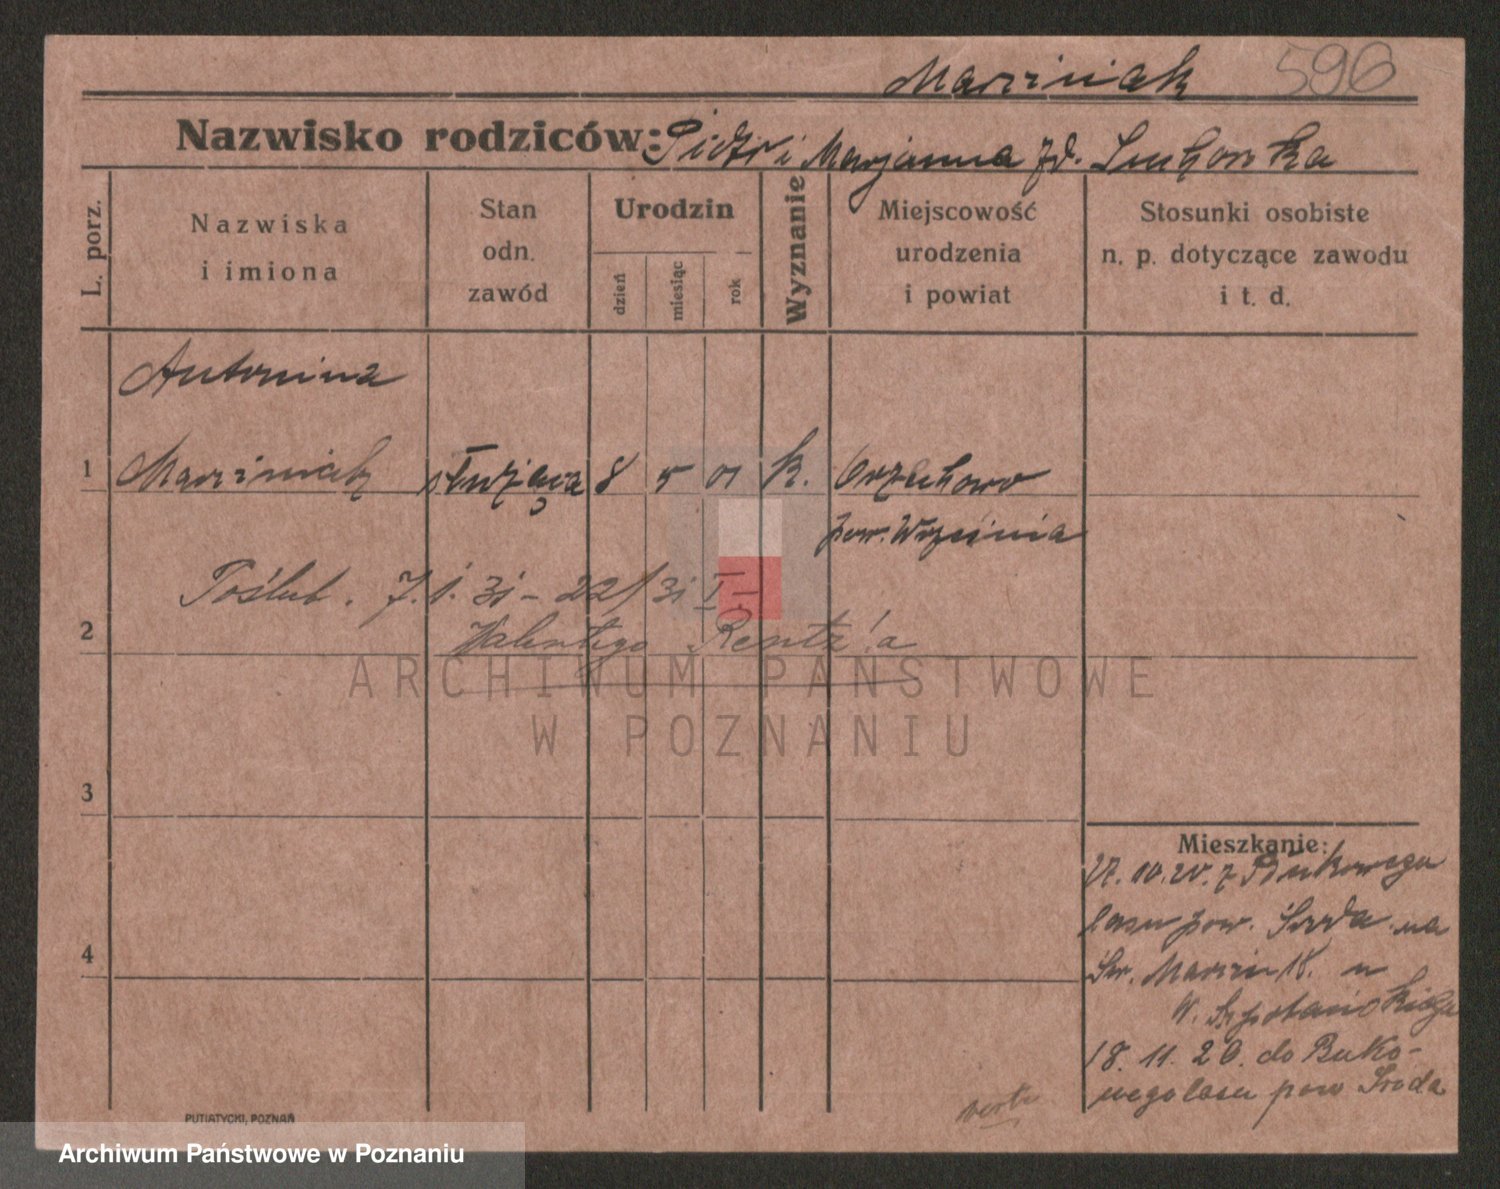 Marciniak 596
Nazwisko rodziców: Piotr i Marjanna zd. Suchorska
L. porz.
Nazwiska
i imiona
Stan
odn.
zawód
Urodzin
dzień
miesiąc
rok
Wyznanie
Miejscowość
urodzenia
i powiat
Stosunki osobiste
n. p. dotyczące zawodu
i t. d.
Antonina
1 Marciniak służąca 8 5 01 k. Orzechowo
pow. Września
Poślub. 7.1.31 - 22/31 I
2 Walentego
3
Mieszkanie:
27.10.20. z Bukowego
lasu pow. Środa na
Św. Marcin 18. u
W. Szpotańskiego
4
18.11.20. do Buko-
wego lasu pow Środa
verte
PUTIATYCKI, POZNAŃ
ARCHIWUM PAŃSTWOWE
W POZNANIU
Archiwum Państwowe w Poznaniu